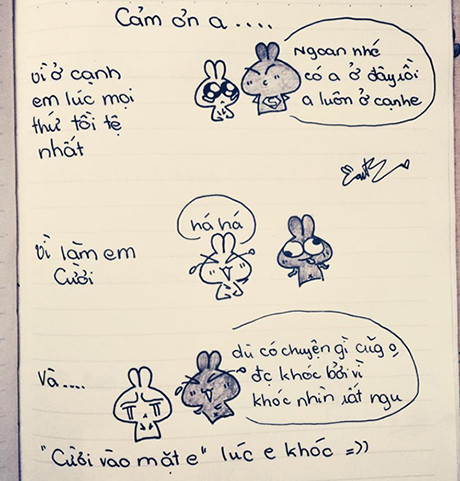 Cảm ơn a....
Vì ở cạnh
em lúc mọi
thứ tồi tệ
nhất
Ngoan nhé
có a ở đây rồi
a luôn ở cạnh e
Vì làm em
Cười
há há
Và....
dù có chuyện gì cũg o
đc khóc bởi vì
khóc nhìn rất ngu
"Cười vào mặt e" lúc e khóc =))